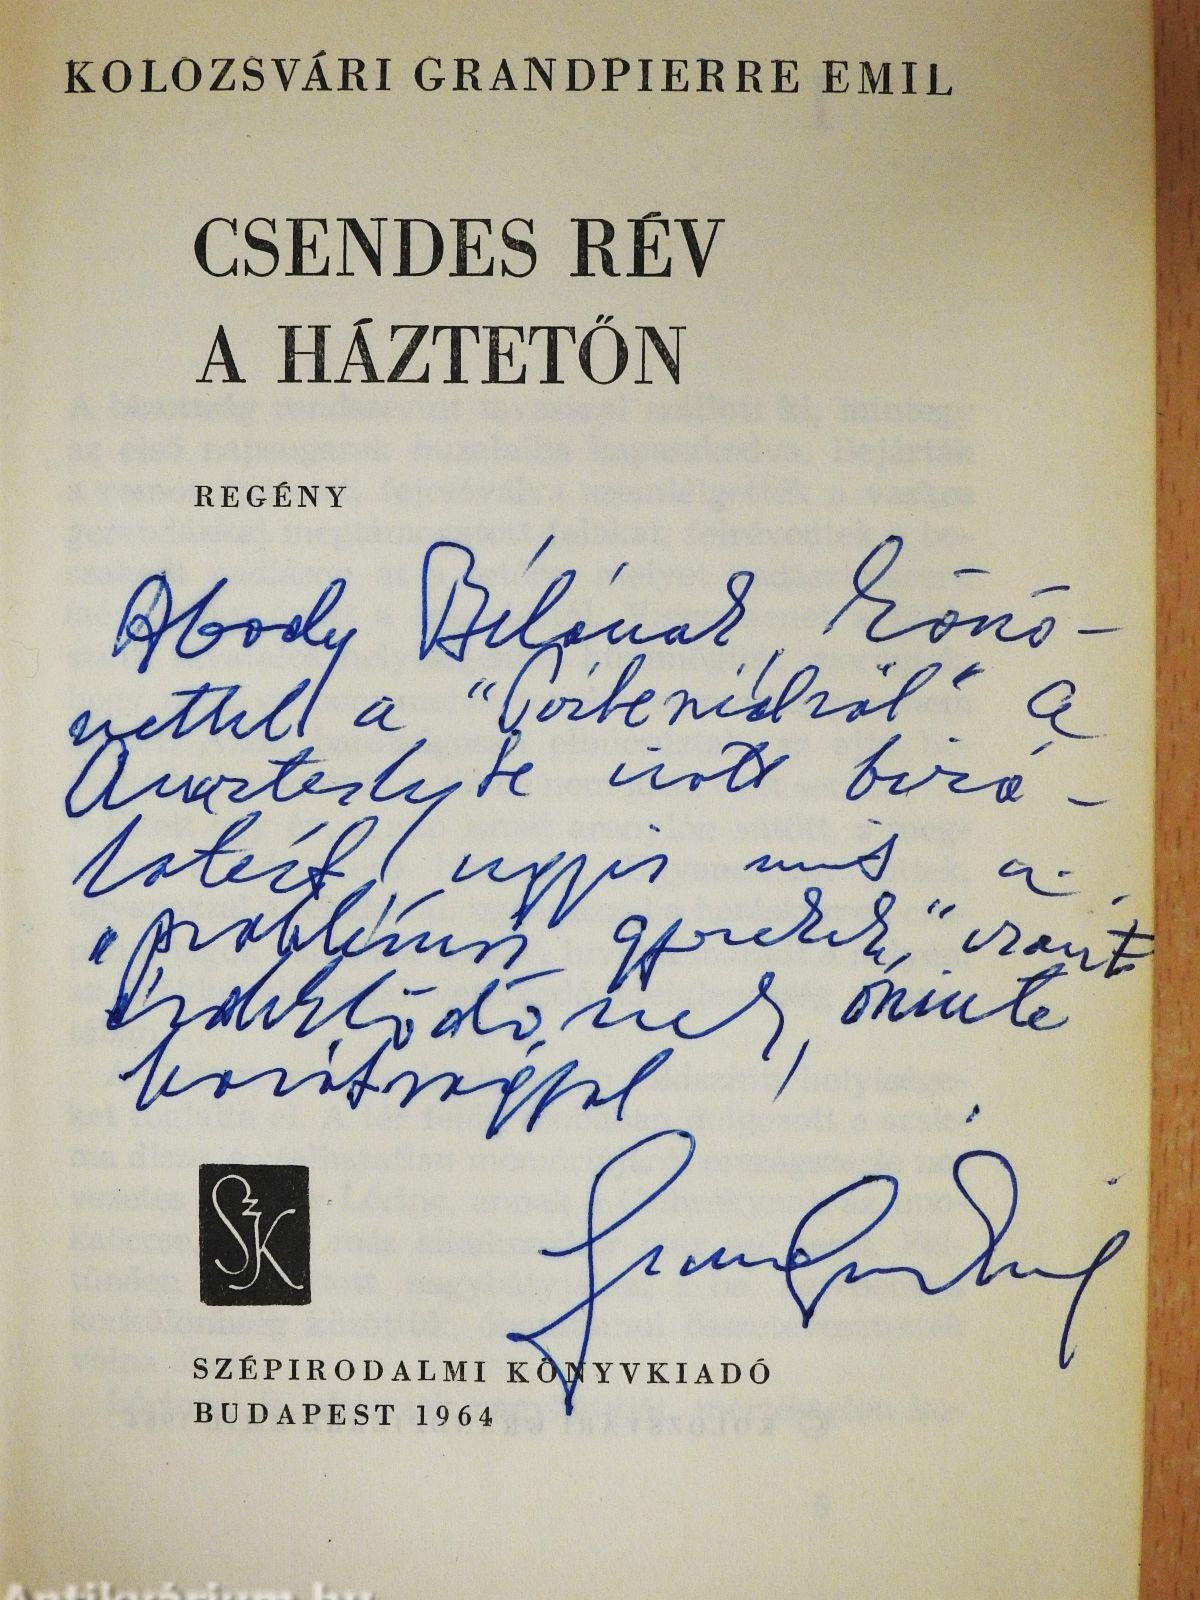 KOLOZSVÁRI GRANDPIERRE EMIL
CSENDES RÉV
A HÁZTETŐN
REGÉNY
Abody Bélának köszö-
nettel a "Párbeszédről" a
Quarterlybe írott bírá-
latért, ugyis mint a
"problémás gyerekek" iránt
érdeklődőnek, őszinte
barátsággal
Grandpierre Emil
SZK
SZÉPIRODALMI KÖNYVKIADÓ
BUDAPEST 1964
Antikvárium.hu